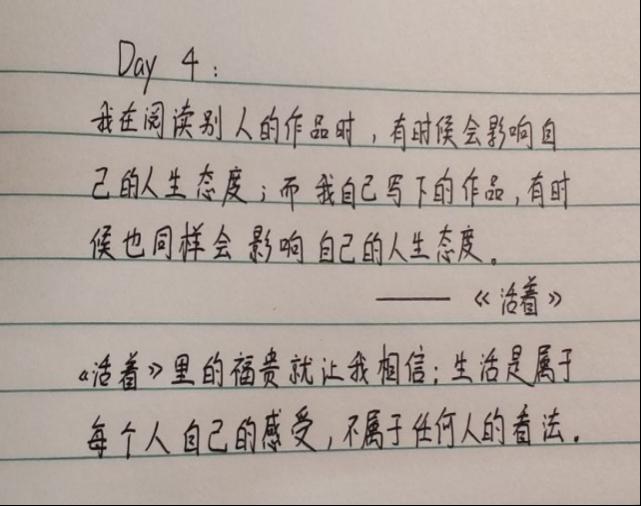 Day 4:
我在阅读别人的作品时，有时候会影响自
己的人生态度；而我自己写下的作品，有时
候也同样会影响自己的人生态度。
——《活着》
《活着》里的福贵就让我相信：生活是属于
每个人自己的感受，不属于任何人的看法。